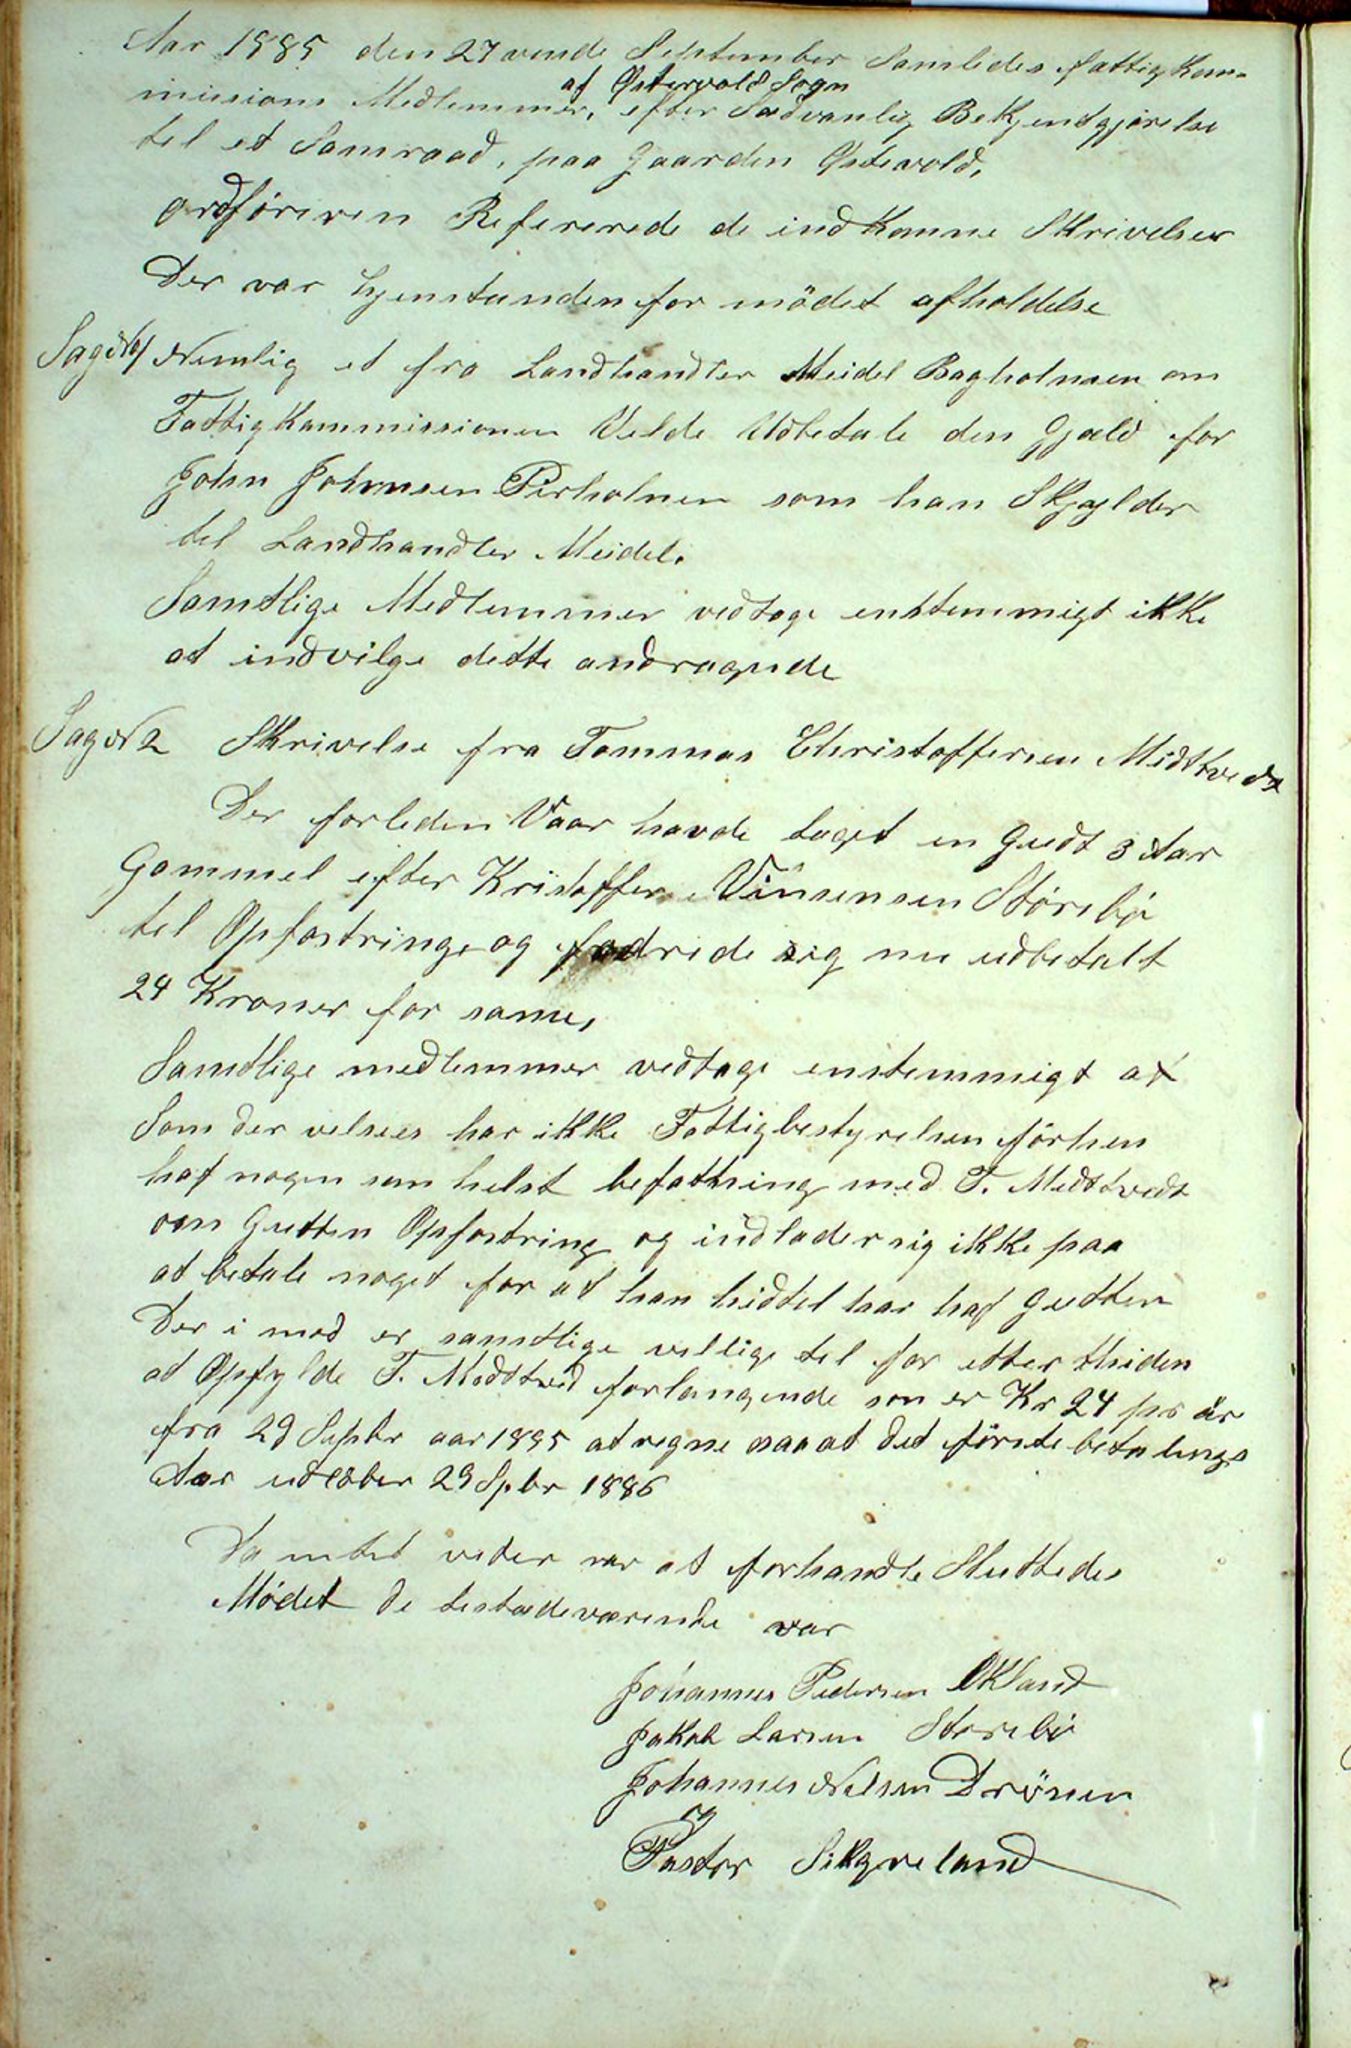 Aar 1885 den 27vende September Samledes fattigkom-
missions Medlemmer, af Østervold Sogn efter Sædvanlig Bekjendtgjørelse
til et Samraad, paa Gaarden Østevold,
ordføreren Refererede de indkomne Skrivelser
Der var Gjenstanden for mødet afholdelse
Sag N 1 Nemlig et fra Landhandler Meidel Bagholmen om
Fattigkommissionen Velde Udbetale den Gjæld for
John Johnsen Pirholmen som han Skjylder
til Landhandler Meidel.
Samtlige Medlemmer vedtoge enstemmigt ikke
at indvilge dette andragende
Sag N 2 Skrivelse fra Tommas Christoffersen Midttvedt
Der forleden Vaar havde taget en Gudt 3 Aar
Gammel efter Kristoffer Vinsensen Storebø
til Opfostringe og fodrede sig nu udbetalt
24 Kroner for same,
Samtlige medlemmer vedtoge enstemmigt at
Som der velsees har ikke Fattigbestyrelsen førhen
haf nogen som helst befattning med T. Medttvedt
om Gutten Opfostring og indlader sig ikke paa
at betale noget for at han hidtel har haf Gutten
Der i mod er samtlige vellige til for etter thiden
at Opfylde T. Medttved forlangende som er Kr 24 pr år
fra 29 Septbr aar 1885 at regne saa at det første betalings
Aar udløber 29 Spbr 1886
Da intet vider var at forhandle Sluttedes
Mødet De testædeværende var
Johannes Pedersen Økland
Jakob Larsen Storebø
Johannes Nelsen Drönen
og
Pastor Sikveland